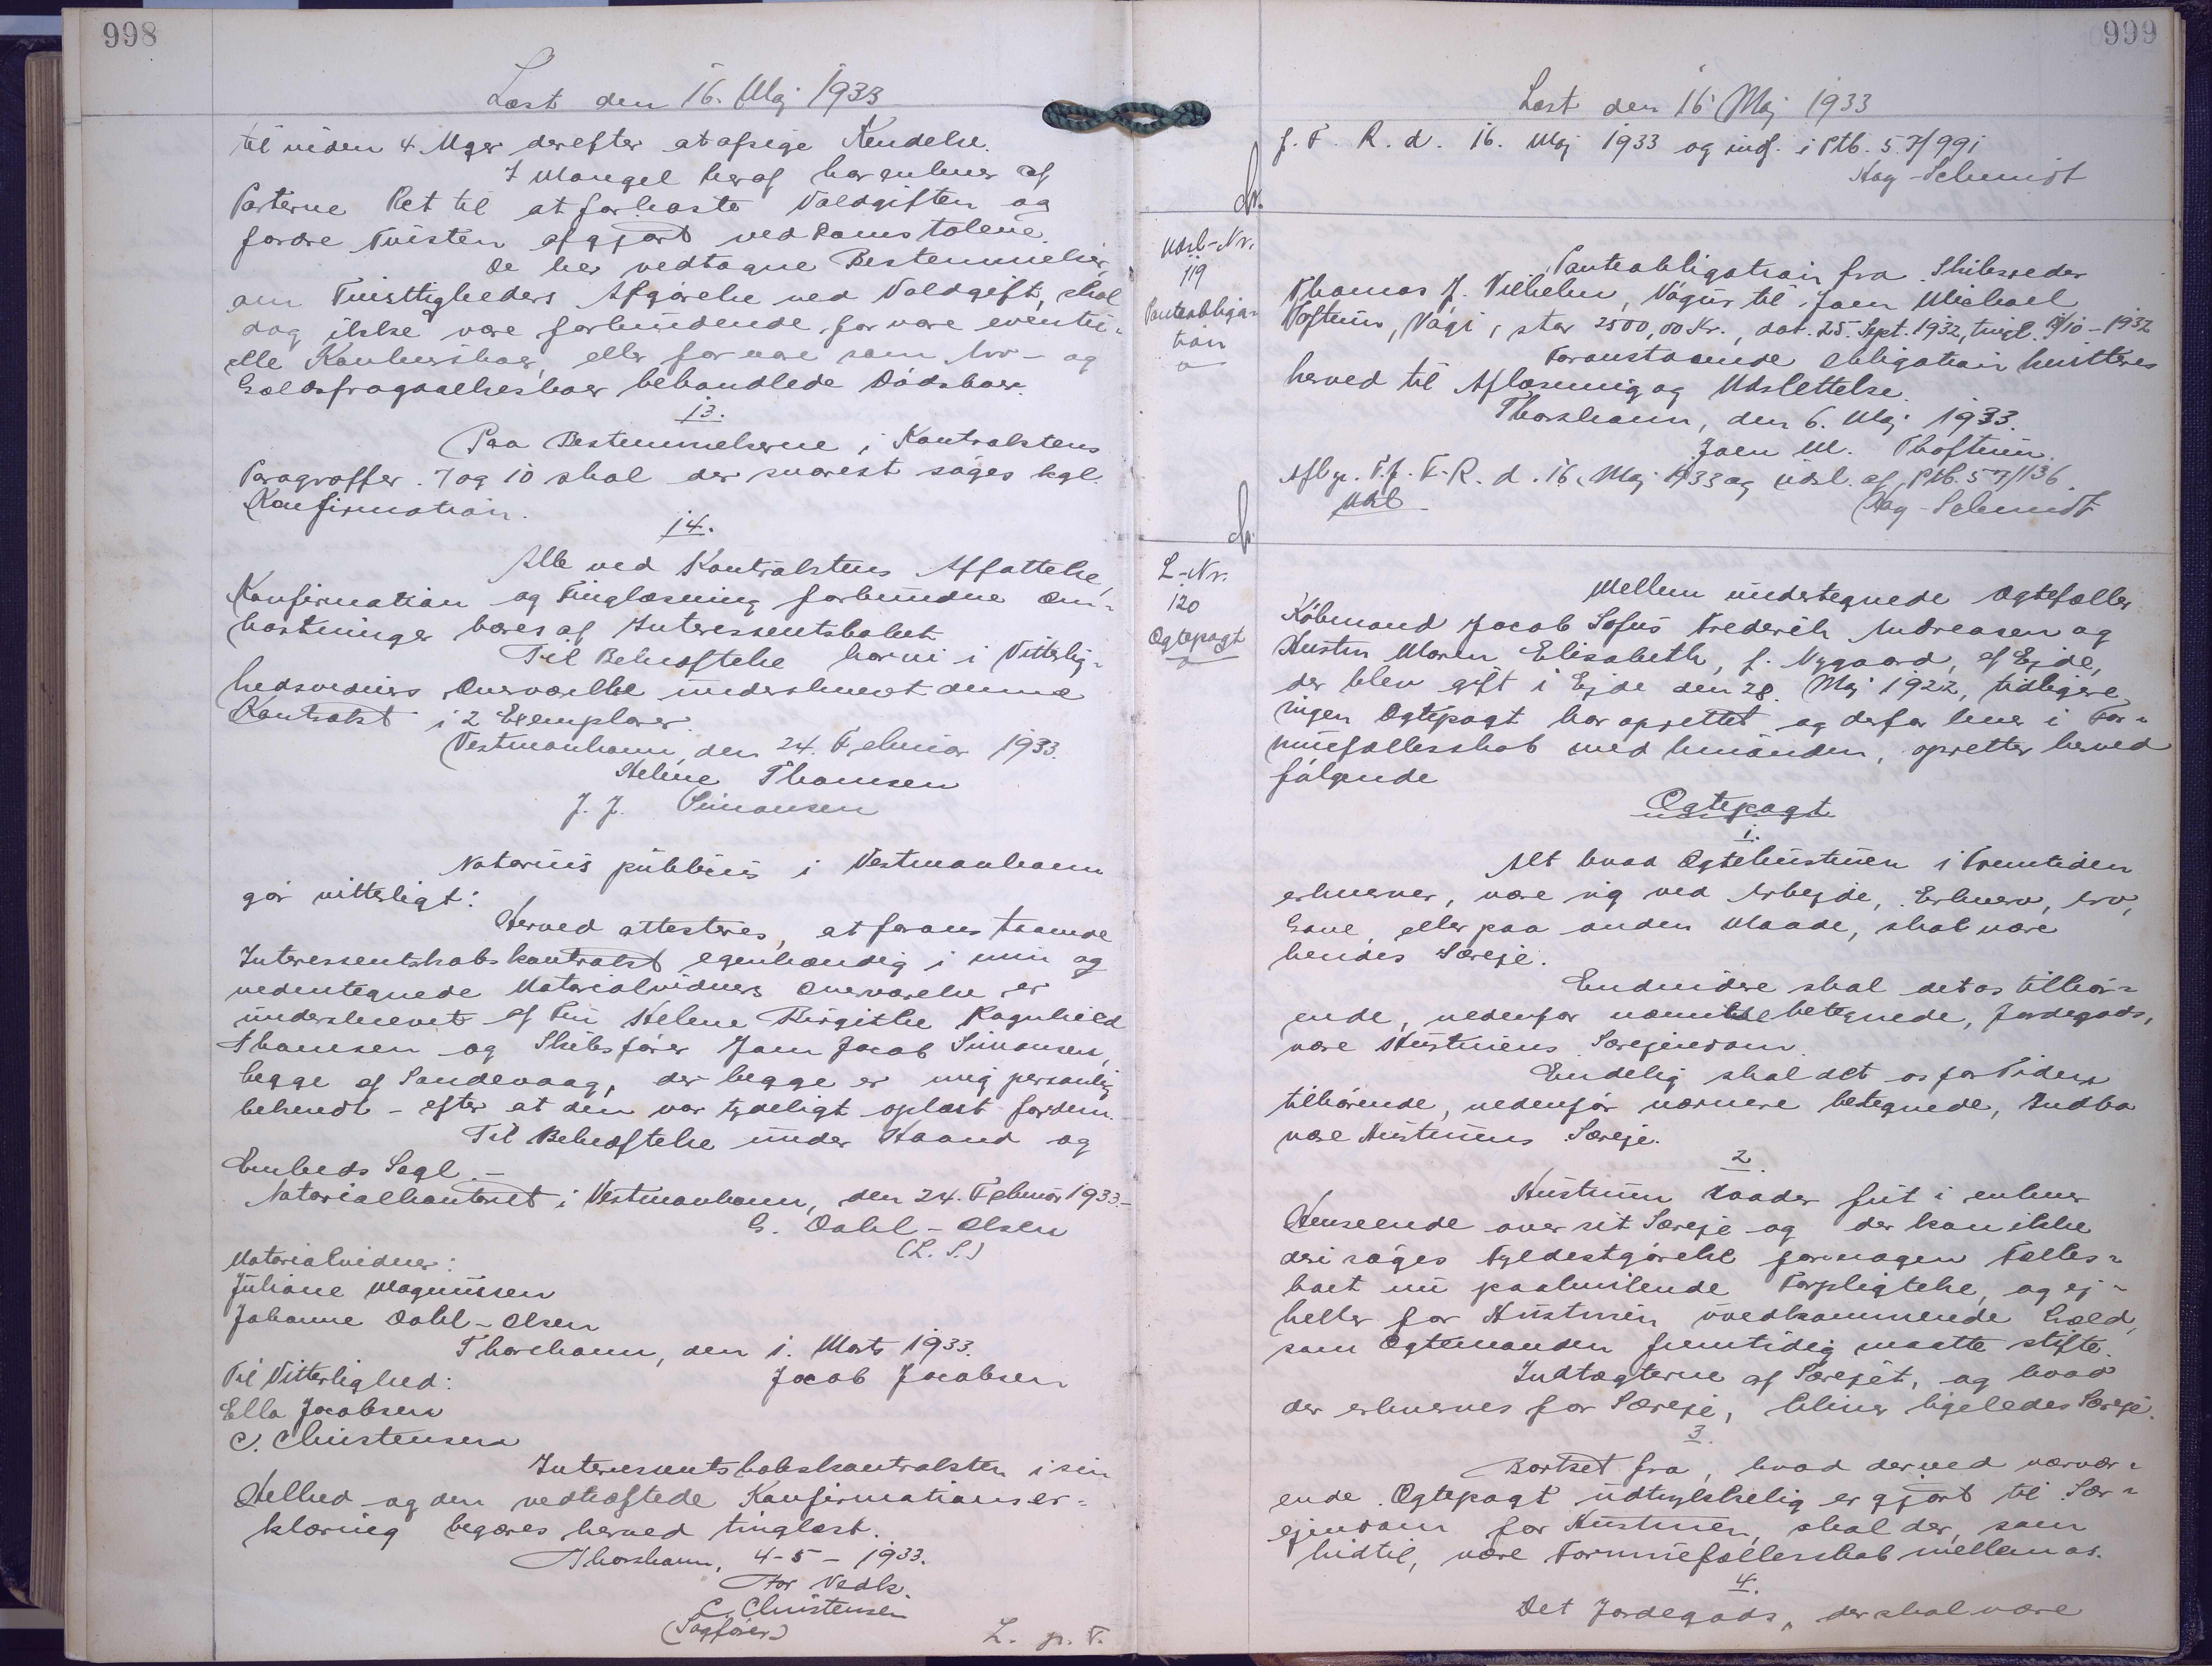 998
Læst den 16. Maj 1933
til inden 4 Mgr derefter at afsige Kendelse.
I Mangel heraf har enhver af
Parterne Ret til at forkaste Voldgiften og
fordre Tvisten afgjort ved Domstolene.
De her vedtagne Bestemmelser
om Tvistigheders Afgörelse ved Voldgift, skal
dog ikke være forbindende for vore eventu-
elle Konkursboer, eller for vore som Arv- og
Gældsfragaaelsesboer behandlede Dödsboer.
13.
Paa Bestemmelserne i Kontraktens
Paragraffer 7 og 10 skal der snarest söges kgl.
Konfirmation.
14.
Alle ved Kontraktens Affattelse,
Konfirmation og Tinglæsning forbundne Om-
kostninger bæres af Interessentskabet.
Til Bekræftelse har vi i Vitterlig-
hedsvidners Overværelse underskrevet denne
Kontrakt i 2 Exemplarer.
Vestmanhavn, den 24. Februar 1933.
Helene Thomsen
J. J. Simonsen
Notarius publicus i Vestmanhavn
gör vitterligt:
Herved attesteres, at foranstaaende
Interessentskabskontrakt egenhændig i min og
nedentegnede Notarialvidners Overværelse er
underskrevet af Fru Helene Birgithe Ragnhild
Thomsen og Skibsförer Joen Jacob Simonsen,
begge af Sandevaag, der begge er mig personlig
bekendt - efter at den var tydeligt oplæst for dem.
Til Bekræftelse under Haand og
Embeds Segl.-
Notarialkontoret i Vestmanhavn, den 24. Februar 1933.-
G. Dahl-Olsen
(L. S.)
Notarialvidner:
Juliane Magnussen
Johanne Dahl-Olsen
Thorshavn, den 1. Marts 1933.
Til Vitterlighed: Jacob Jacobsen
Ella Jacobsen
C. Christensen
Interessentskabskontrakten i sin
Helhed og den vedhæftede Konfirmationser-
klæring begæres herved tinglæst.
Thorshavn, 4-5-1933.
For Vedk.
C. Christensen
(Sagförer)
L. p. T.
999
Læst den 16 Maj 1933
f. F. R. d. 16. Maj 1933 og indf. i Ptb. 5.7/991
Aag-Schmidt
Udsl-Nr.
119
Panteobliga-
tion
Panteobligation fra Skibsreder
Thomas f. Vilhelm, Vágur til Joen Michael
Toftum, Vági, stor 2500,00 Kr., dat. 25. Sept. 1932, tingl. /10-1932
Foranstaaende Obligation kvitteres
herved til Aflæsning og Udslettelse.
Thorshavn, den 6. Maj 1933.
Joen M. Thoftum.
Aflyst. T.f. F.R. d. 16. Maj 1933 og udsl. af Ptb. 57/136.
Udsl Aag-Schmidt
L-Nr.
120
Ægtepagt
Mellem undertegnede Ægtefæller
Köbmand Jacob Sofus Frederik Andreasen og
Hustru Maren Elisabeth, f. Nygaard, af Ejde,
der blev gift i Ejde den 28. Maj 1922, tidligere
ingen Ægtepagt har oprettet og derfor lever i For-
muefællesskab med hinanden, opretter herved
fölgende
Ægtepagt
1.
Alt hvad Ægtehustruen i Fremtiden
erhverver, være sig ved Arbejde, Erhverv, Arv,
Gave, eller paa anden Maade, skal være
hendes Særeje.
Endvidere skal det os tilhör-
ende, nedenfor betegnede, Jordegods,
være Hustruens Særejendom.
Endelig skal det os for Tiden
tilhörende, nedenfor nærmere betegnede, Indbo
være Hustruens Særeje.
2.
Hustruen raader frit i enhver
Henseende over sit Særeje og der kan ikke
deri söges Fyldestgörelse for nogen Fælles-
boet nu paahvilende Forpligtelse, og ej-
heller for Hustruen uvedkommende Gæld,
som Ægtemanden fremtidig maatte stifte.
Indtægterne af Særejet, og hvad
der erhverves for Særeje, bliver ligeledes Særeje.
3.
Bortset fra, hvad der ved nærvær-
ende Ægtepagt udtrykkelig er gjort til Sær-
ejendom for Hustruen, skal der, som
hidtil, være Formuefællesskab mellem os.
4.
Det Jordegods, der skal være